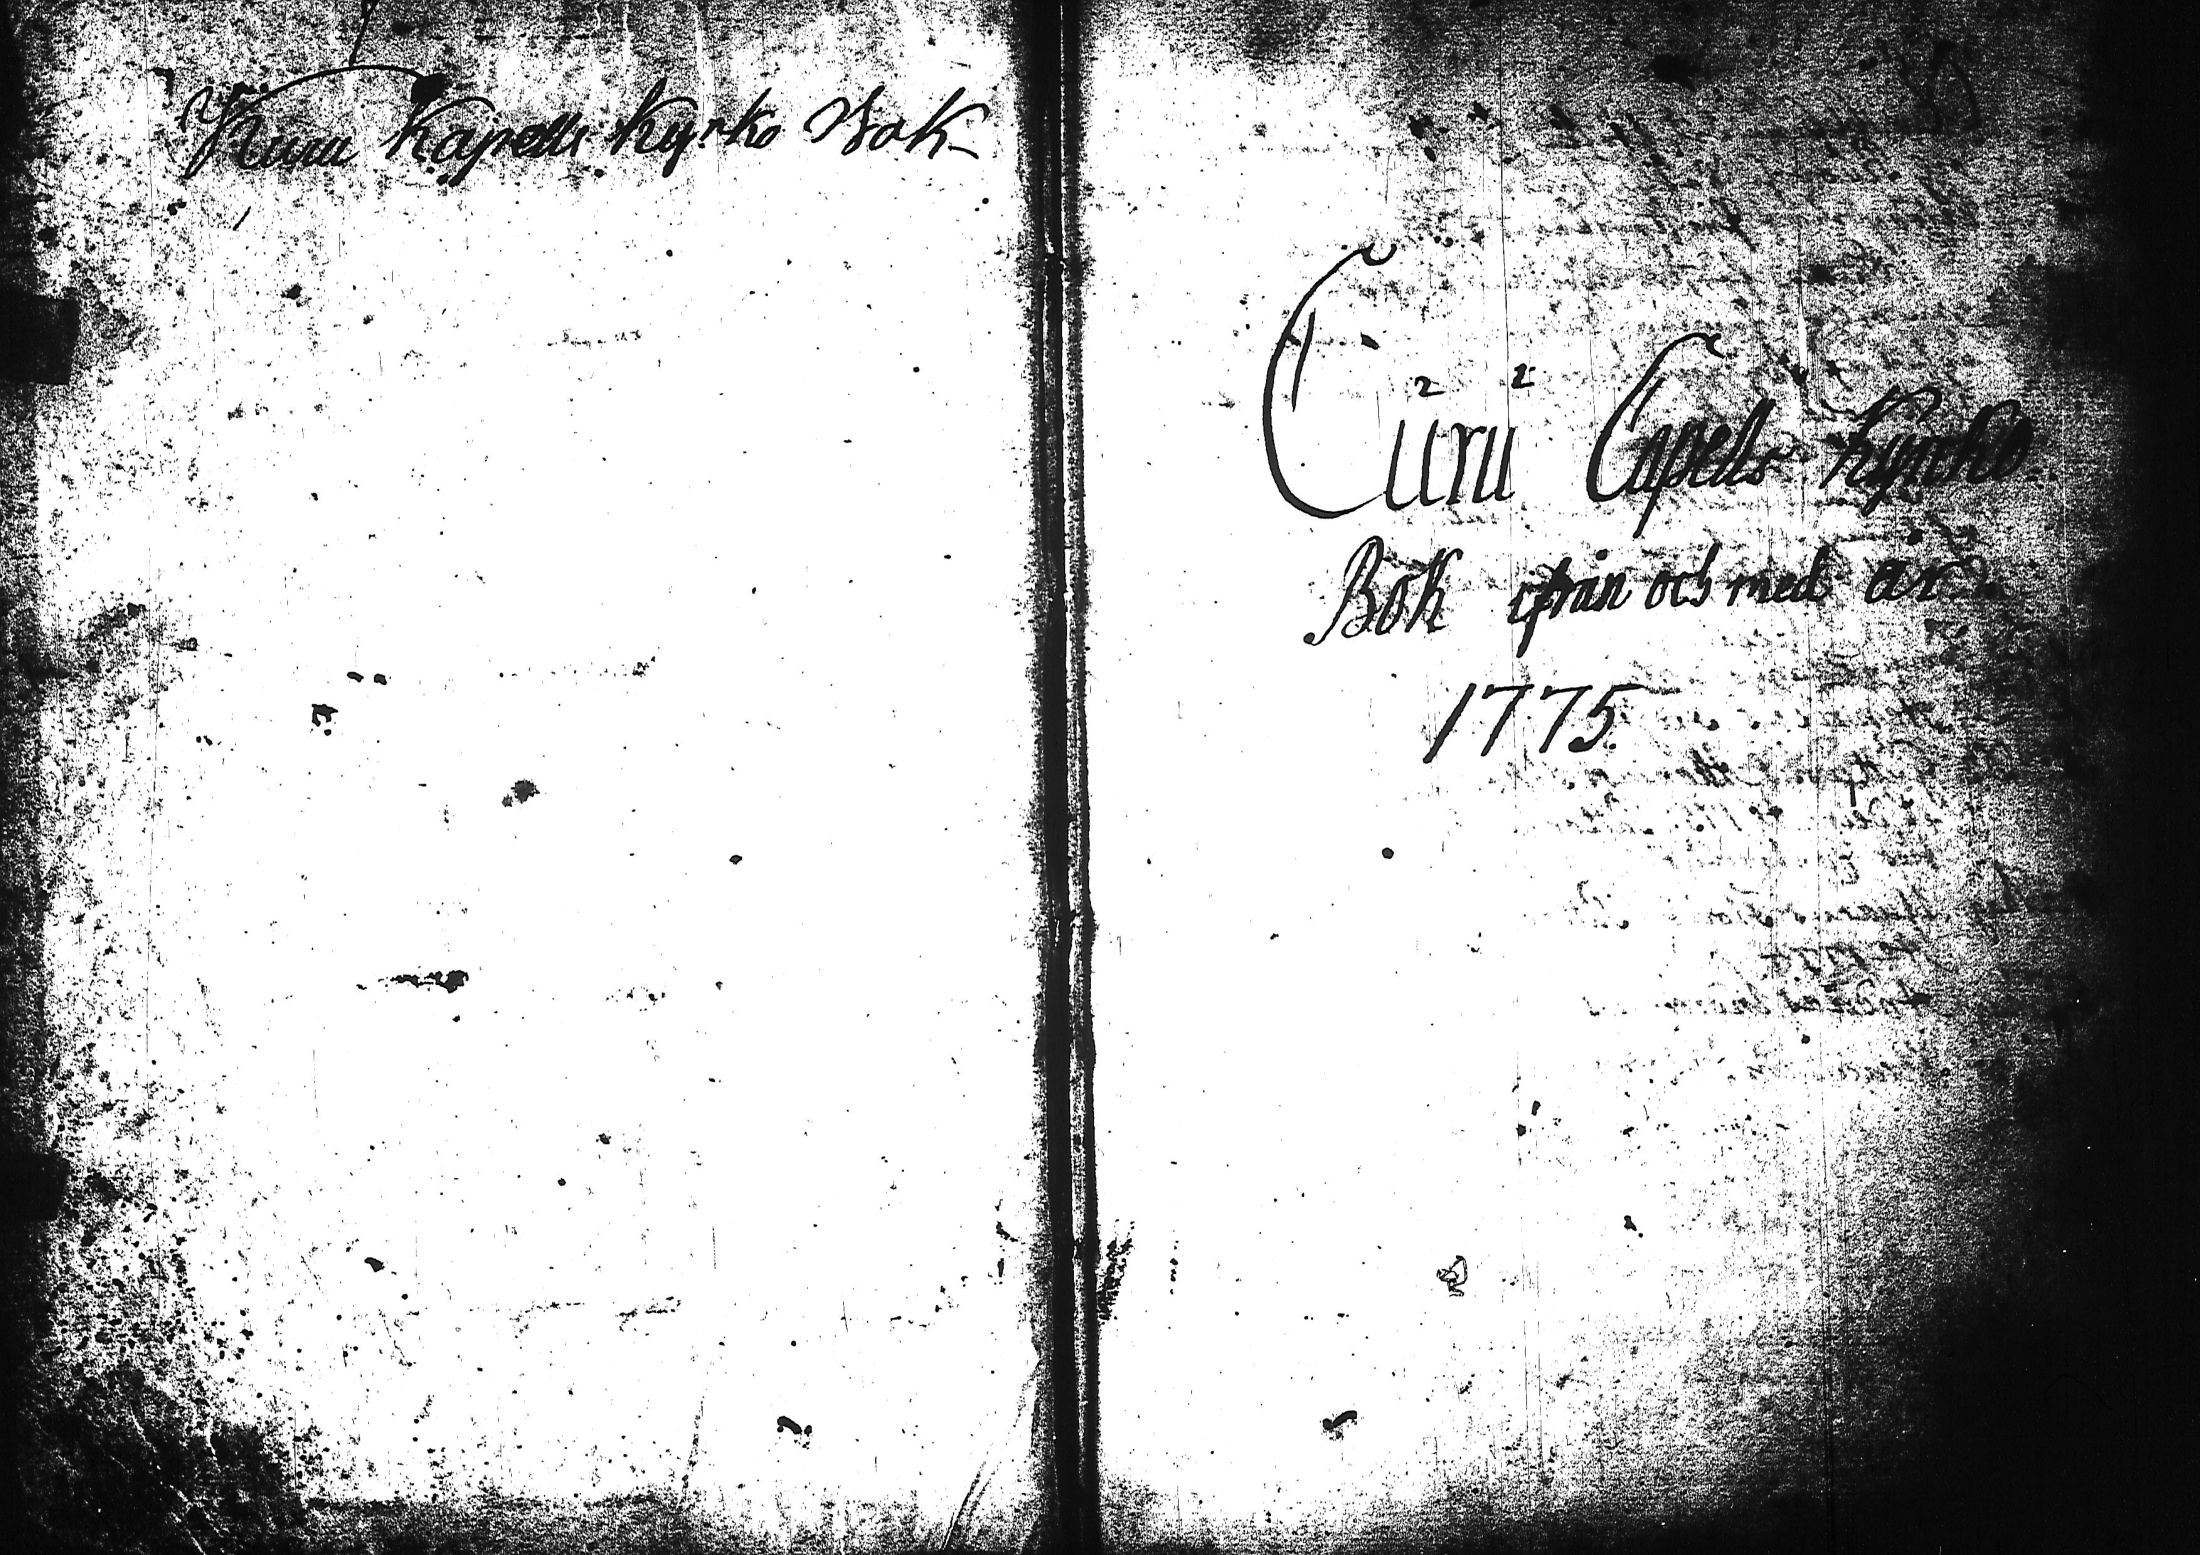 Kuru Kapells Kyrko Bok
Curu Capells Kyrko
Bok ifrån och med år
1775.